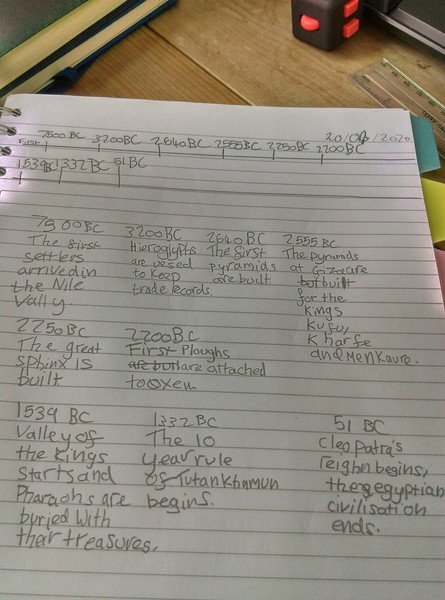 20/01/2020
7500 BC 3200BC 2640BC 2555BC 2250BC 2200BC
First
1539BC 1332BC 51 BC
7500BC
The first
settlers
arrived in
the Nile
Vally
3200 BC
Hieroglyfts
are vesed
to keep
trade records.
2640 BC
The first
pyramids
are built
2555 BC
The pyramids
at Giza are
built
for the
kings
Kufu,
Kharfe
and Menkaure.
2250BC
The great
sphinx is
built
2200BC
First Ploughs
are built are attached
to oxen
1539 BC
Valley of
the Kings
starts and
Pharaohs are
buried with
thair treasures.
1332 BC
The 10
year rule
of Tutankhamun
begins.
51 BC
Cleopatra's
reighn begins,
the egyptian
civilisation
ends.